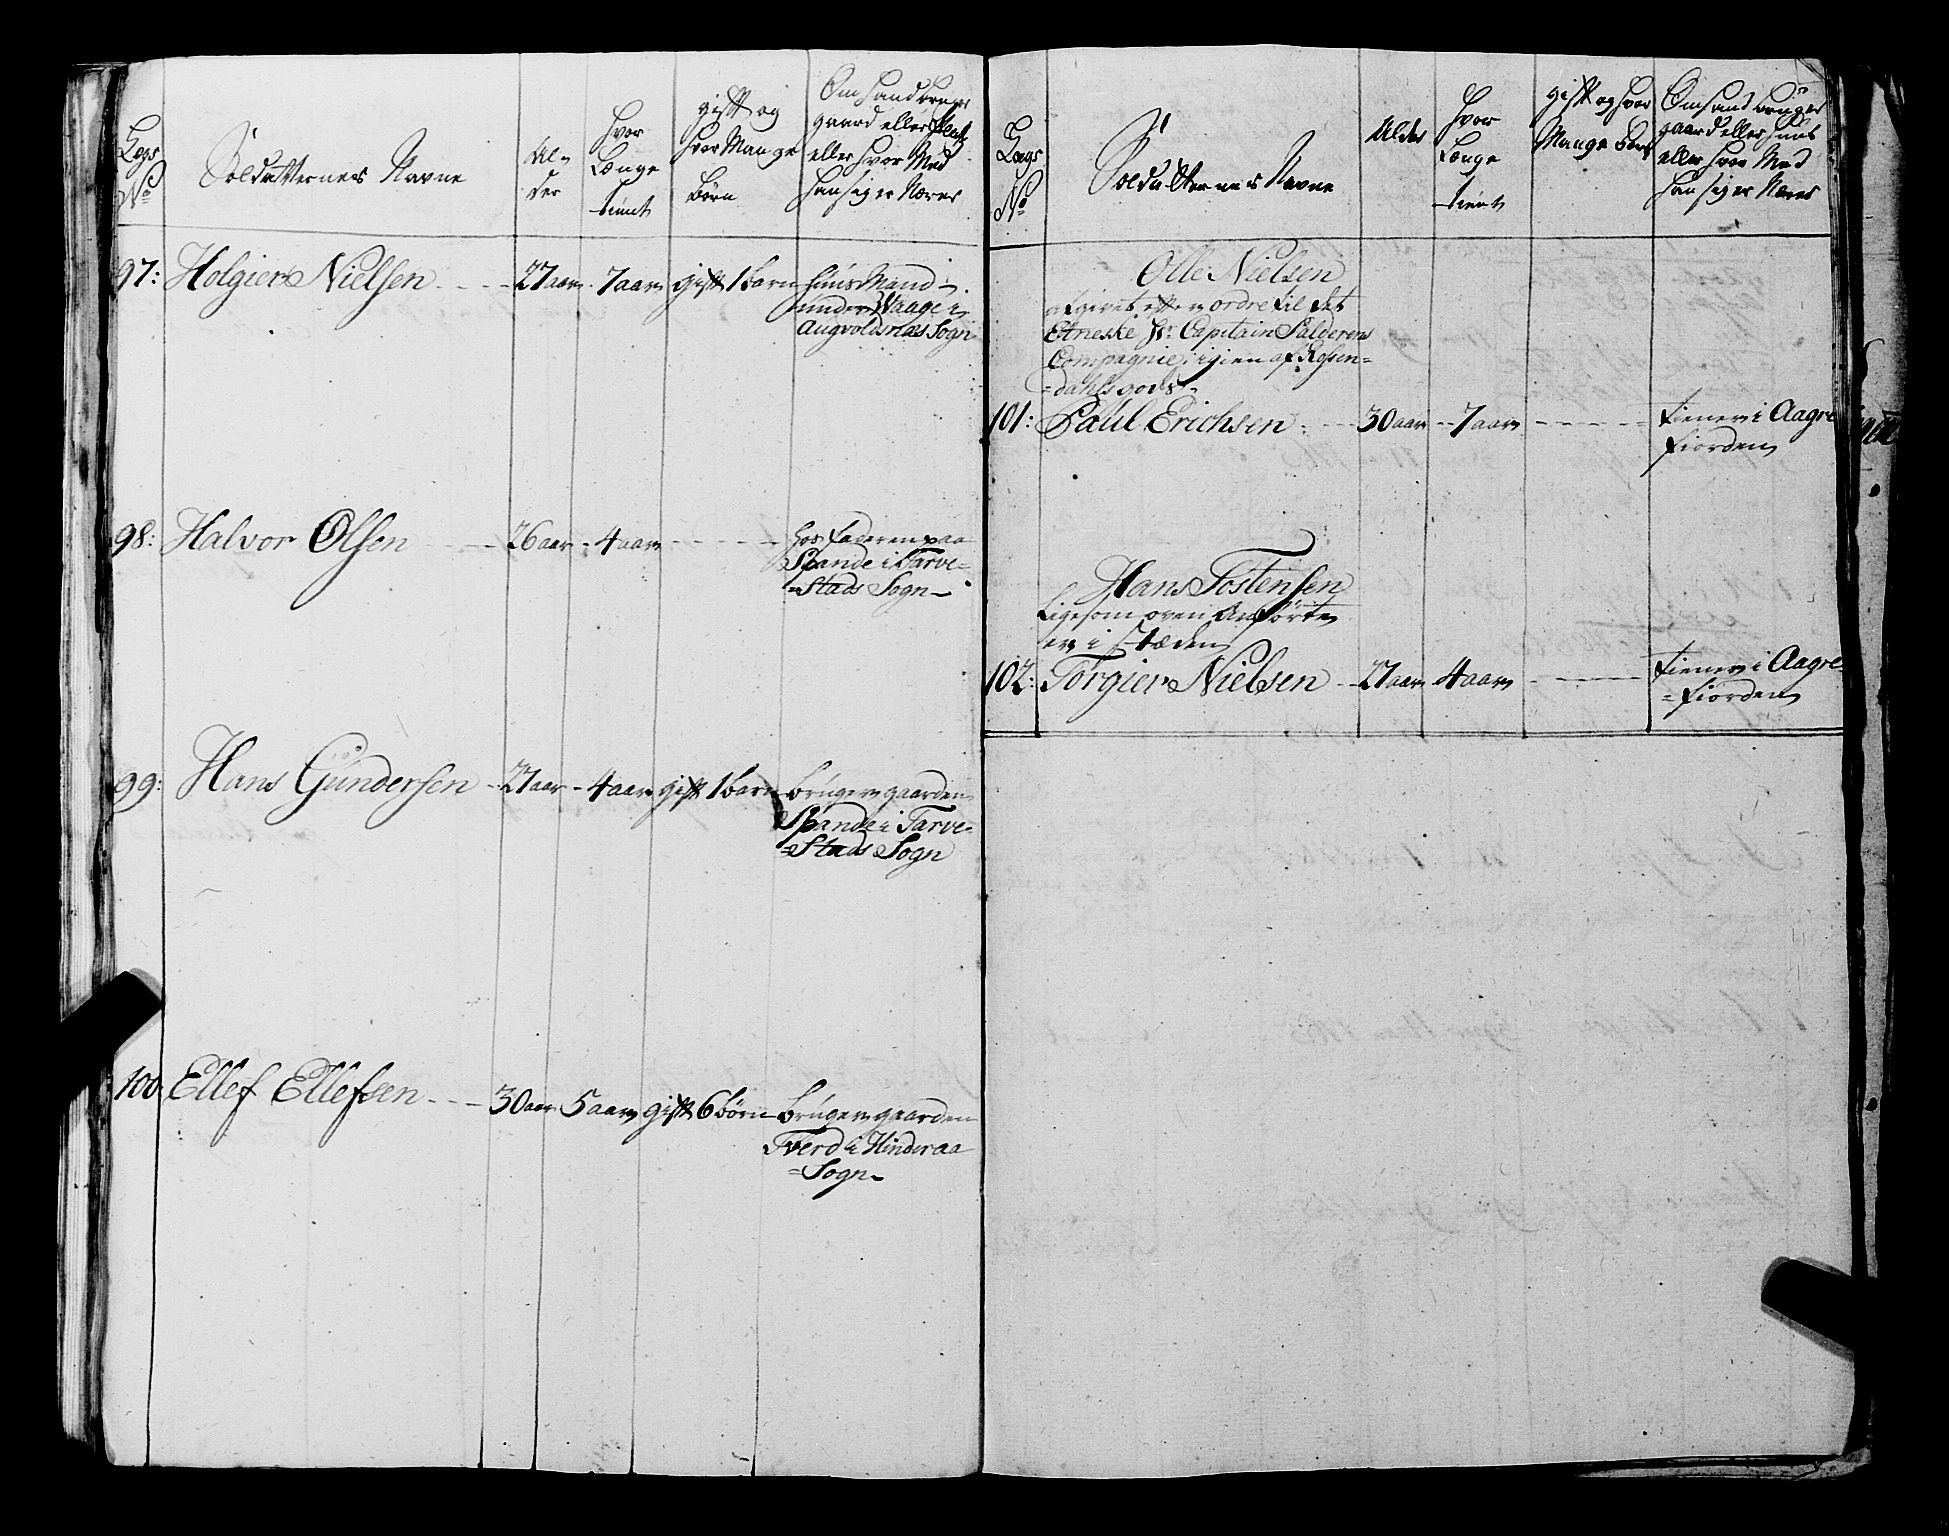 Legs
No
Soldatternes Navne
Al-
der
hvor
Længe
tient
gift og
hvor Mange
börn
Om hand bruger
gaard eller
eller hvor Med
han sig er Nærer
97: Holgier Nielsen 27 aar 7 aar gift 1 barn huus Mand
under Waage i
Augvoldsnæs Sogn
98: Halvor Olsen 26 aar 4 aar hos faderen paa
Spande i Tarve-
=Stads Sogn
99: Hans Gundersen 27 aar 4 aar gift 1 barn bruger gaarden
Spande i Tarve-
=Stads Sogn
100 Ellef Ellefsen 30 aar 5 aar gift 6 börn bruger gaarden
Tverd i Hinderaa
=Sogn
Legs
No
Soldatternes Navne
Alder
hvor
Længe
tient
gift og hvor
Mange börn
Om hand bruger
gaard eller huus
eller hvor Med
han sig er Nærer
Olle Nielsen
afgivet efter ordre til det
Etneske Hr Capitain Salderens
Compagnie, igien af Rosen=
=dahls gods
101: Paul Erichsen 30 aar 7 aar tiener i Aagre
fiorden
Hans Tostensen
ligesom oven Anförte
er i stæden
102: Torgier Nielsen 27 aar 4 aar tiener i Aagre=
=fiorden